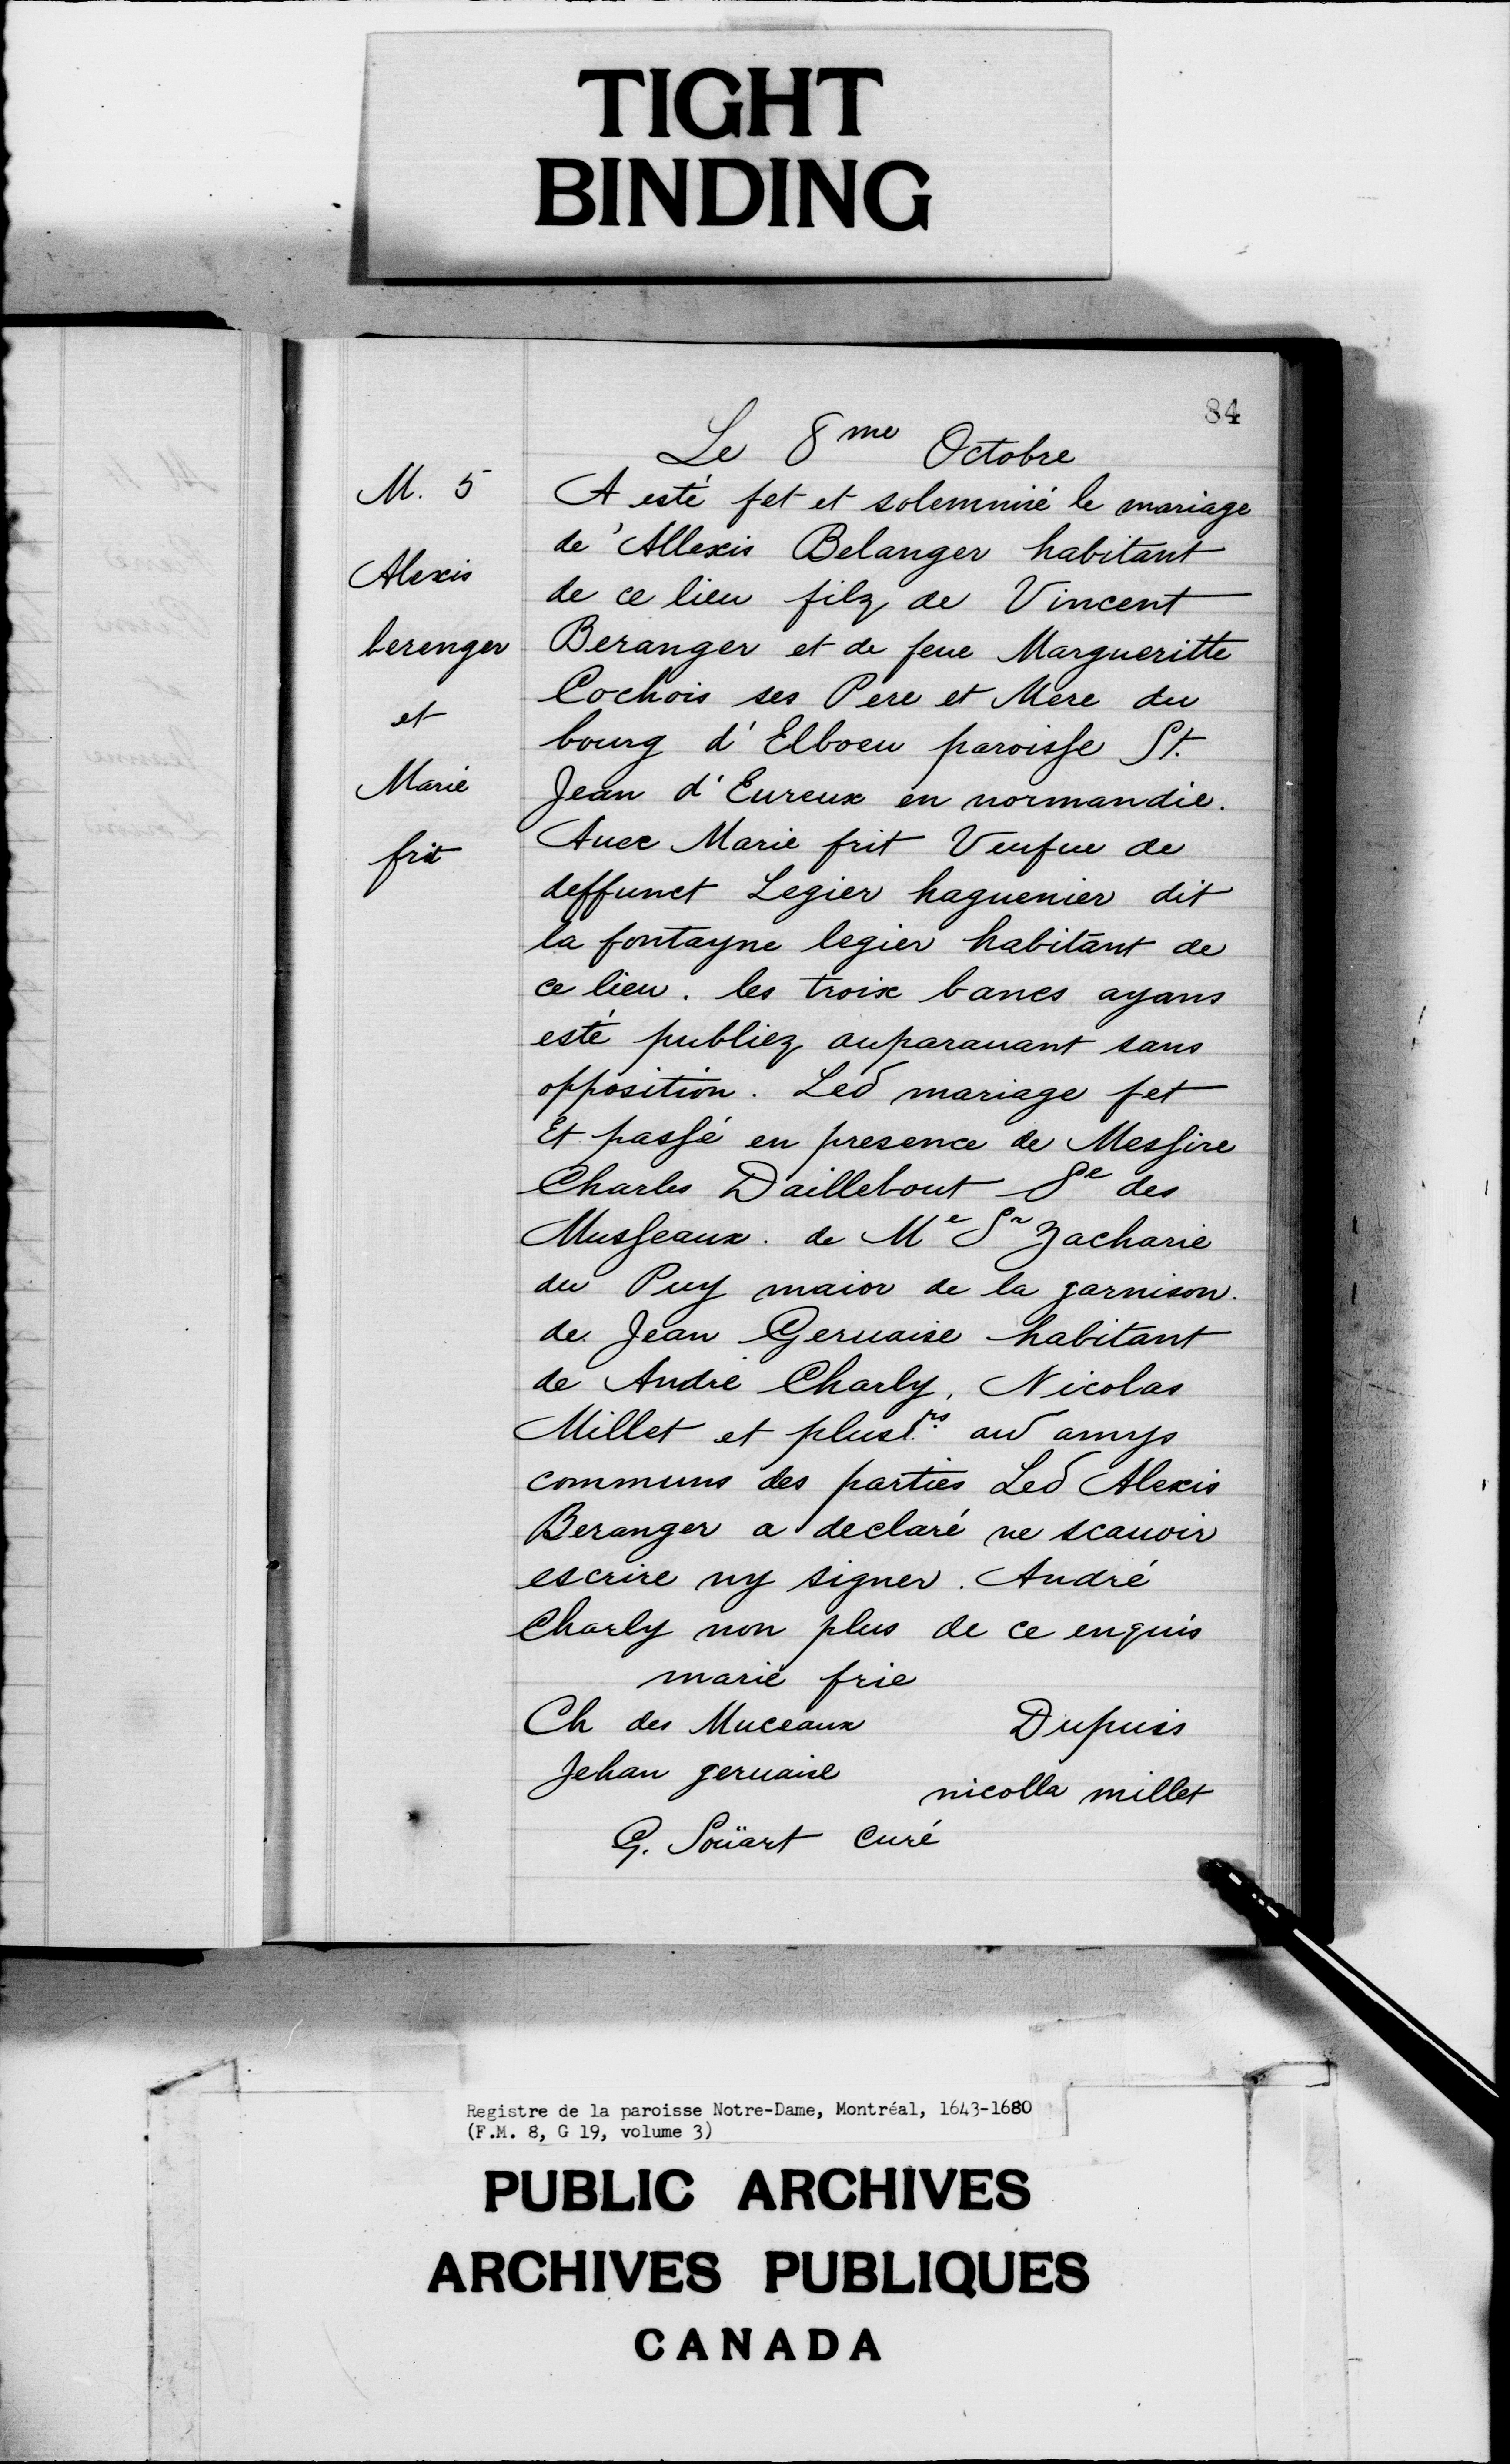 TIGHT
BINDING
84
Le 8me Octobre
M. 5
Alexis
berenger
et
Marie
frit
A esté fet et solemnisé le mariage
de Allexis Belanger habitant
de ce lieu filz de Vincent
Beranger et de feue Margueritte
Cochois ses Pere et Mere du
bourg d'Elboeu paroisse St.
Jean d'Eureux en normandie.
Auec Marie frit Veufue de
deffunct Legier haguenier dit
la fontayne legier habitant de
ce lieu. les troix bancs ayans
esté publiez auparauant sans
opposition. Led mariage fet
Et passé en presence de Messire
Charles Daillebout Se des
Musseaux. de Me Sr Zacharie
du Puy maior de la garnison.
de Jean Geruaise habitant
de André Charly, Nicolas
Millet et plusrs aud amys
communs des parties Led Alexis
Beranger a declaré ne scauoir
escrire ny signer. André
Charly non plus de ce enquis
marie frie
Ch des Muceaux Dupuis
Jehan geruaise nicolla millet
G. Soüart Curé
Registre de la paroisse Notre-Dame, Montréal, 1643-1680
(F.M. 8, G 19, volume 3)
PUBLIC ARCHIVES
ARCHIVES PUBLIQUES
CANADA